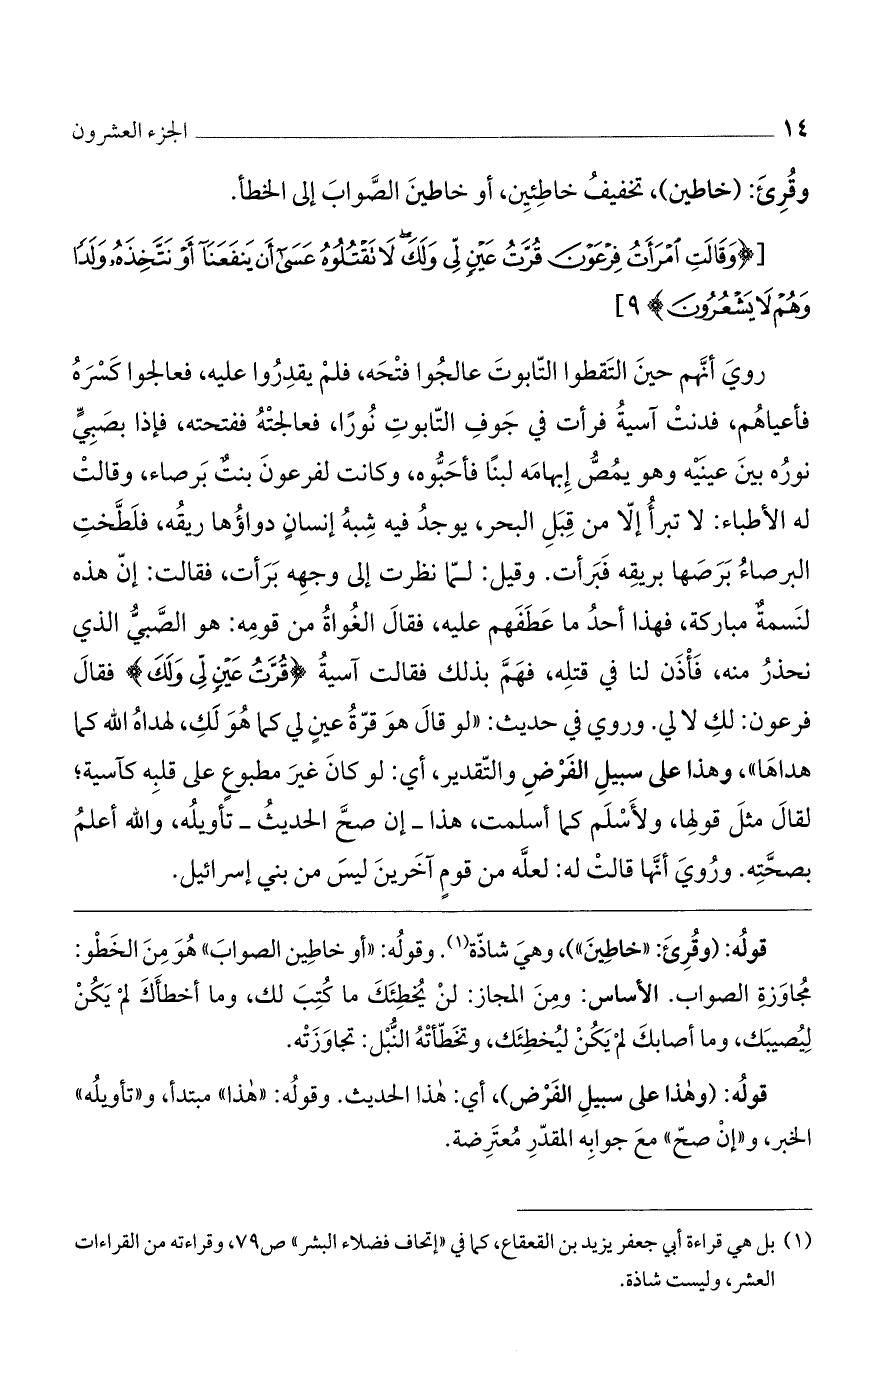 ١٤ ـــــــــــــــــــــــــــــــــــــــــــــ الجزء العشرون
وقُرِئَ: (خاطين)، تخفيفُ خاطِئِين، أو خاطينَ الصَّوابَ إلى الخطأ.
[﴿وَقَالَتِ ٱمْرَأَتُ فِرْعَوْنَ قُرَّتُ عَيْنٍ لِّى وَلَكَ ۖ لَا نَقْتُلُوهُ عَسَىٰٓ أَن يَنفَعَنَآ أَوْ نَتَّخِذَهُۥ وَلَدًا
وَهُمْ لَا يَشْعُرُونَ﴾ ٩]
رويَ أنَّهم حينَ التَقطوا التّابوتَ عالجُوا فتْحَه، فلمْ يقدِرُوا عليه، فعالجوا كَسْرَهُ
فأعياهُم، فدنتْ آسيةُ فرأت في جَوفِ التّابوتِ نُورًا، فعالجتْهُ ففتحته، فإذا بصَبِيٍّ
نورُه بينَ عينَيْه وهو يمُصُّ إبهامَه لبنًا فأحَبُّوه، وكانت لفرعونَ بنتٌ بَرصاء، وقالتْ
له الأطباء: لا تبرأُ إلّا من قِبَلِ البحر، يوجدُ فيه شِبهُ إنسانٍ دواؤُها ريقُه، فلَطَّختِ
البرصاءُ بَرَصَها بريقِه فَبَرأت. وقيل: لـمّا نظرت إلى وجهِه بَرَأت، فقالت: إنّ هذه
لنَسمةٌ مباركة، فهذا أحدُ ما عَطَفَهم عليه، فقالَ الغُواةُ من قومِه: هو الصَّبيُّ الذي
نحذرُ منه، فَأْذَن لنا في قتلِه، فهَمَّ بذلك فقالت آسيةُ ﴿قُرَّتُ عَيْنٍ لِّى وَلَكَ﴾ فقالَ
فرعون: لكِ لا لي. وروي في حديث: «لو قالَ هوَ قرّةُ عينٍ لي كما هُوَ لَكِ، لهداهُ الله كما
هداهَا»، وهذا على سبيلِ الفَرْضِ والتّقدير، أي: لو كانَ غيرَ مطبوعٍ على قلبِه كآسية؛
لقالَ مثلَ قولِها، ولأَسْلَم كما أسلمت، هذا ـ إن صحَّ الحديثُ ـ تأويلُه، والله أعلمُ
بصحَّتِه. ورُويَ أنَّها قالتْ له: لعلَّه من قومٍ آخَرينَ ليسَ من بني إسرائيل.
قولُه: (وقُرِئَ: «خاطِينَ»)، وهيَ شاذّة(١). وقولُه: «أو خاطِين الصوابَ» هُوَ مِنَ الخَطْو:
مُجاوَزةِ الصواب. الأساس: ومِنَ المجاز: لنْ يُخطِئَكَ ما كُتِبَ لك، وما أخطأَكَ لمْ يَكُنْ
لِيُصيبَك، وما أصابكَ لمْ يَكُنْ ليُخطِئَك، وتَخطّأتْهُ النُّبْل: تجاوَزَتْه.
قولُه: (وهٰذا على سبيلِ الفَرْض)، أي: هٰذا الحديث. وقولُه: «هٰذا» مبتدأ، و«تأويلُه»
الخبر، و«إنْ صحّ» معَ جوابِه المقدّرِ مُعتَرِضة.
(١) بل هي قراءة أبي جعفر يزيد بن القعقاع، كما في «إتحاف فضلاء البشر» ص٧٩، وقراءته من القراءات
العشر، وليست شاذة.